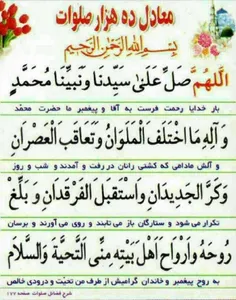 معادل ده هزار صلوات
بِسْمِ اللهِ الرَّحْمٰنِ الرَّحِيمِ
اَللّهُمَّ صَلِّ عَلىٰ سَيِّدِنا وَنَبِيِّنا مُحَمَّدٍ
بار خدایا رحمت فرست به آقا و پیغمبر ما حضرت محمد
وَ آلِهِ مَا اخْتَلَفَ الْمَلَوَانِ وَتَعاقَبَ الْعَصْرَانِ
و آلش مادامی که گشتی رانان در رفت و آمدند و شب و روز
وَكَرَّ الْجَدِيدَانِ وَاسْتَقْبَلَ الْفَرْقَدَانِ وَ بَلِّغْ
تکرار می شود و ستارگان باز می تابند و روی می آورند و برسان
رُوحَهُ وَاَرْوَاحَ اَهْلِ بَيْتِهِ مِنِّى التَّحِيَّةَ وَالسَّلامَ
به روح پیغمبر و خاندان گرامیش از طرف من تحیت و درودی خالص
شرح فضائل صلوات صفحه ۱۷۷